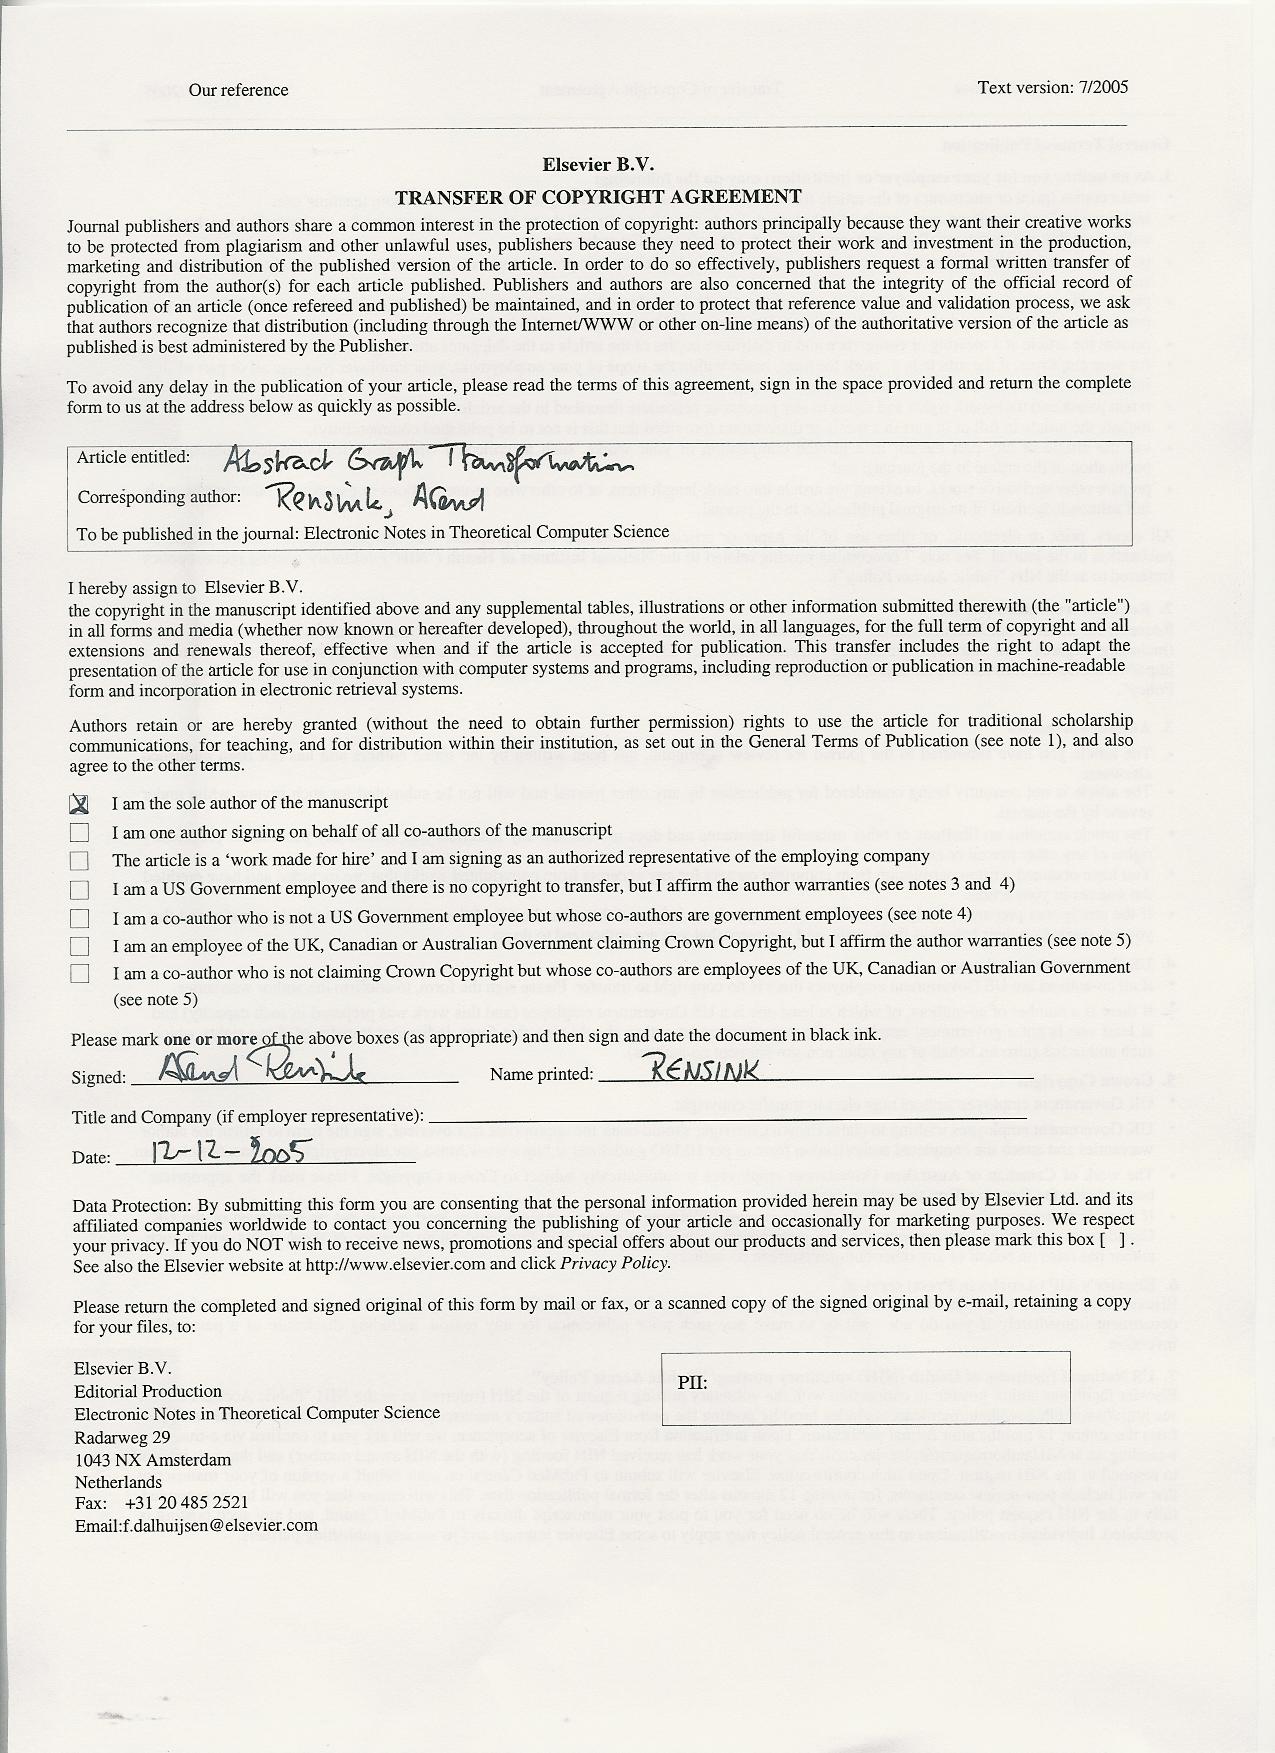 Our reference
Text version: 7/2005
Elsevier B.V.
TRANSFER OF COPYRIGHT AGREEMENT
Journal publishers and authors share a common interest in the protection of copyright: authors principally because they want their creative works
to be protected from plagiarism and other unlawful uses, publishers because they need to protect their work and investment in the production,
marketing and distribution of the published version of the article. In order to do so effectively, publishers request a formal written transfer of
copyright from the author(s) for each article published. Publishers and authors are also concerned that the integrity of the official record of
publication of an article (once refereed and published) be maintained, and in order to protect that reference value and validation process, we ask
that authors recognize that distribution (including through the Internet/WWW or other on-line means) of the authoritative version of the article as
published is best administered by the Publisher.
To avoid any delay in the publication of your article, please read the terms of this agreement, sign in the space provided and return the complete
form to us at the address below as quickly as possible.
Article entitled: Abstract Graph Transformation
Corresponding author: Rensink, Arend
To be published in the journal: Electronic Notes in Theoretical Computer Science
I hereby assign to Elsevier B.V.
the copyright in the manuscript identified above and any supplemental tables, illustrations or other information submitted therewith (the "article")
in all forms and media (whether now known or hereafter developed), throughout the world, in all languages, for the full term of copyright and all
extensions and renewals thereof, effective when and if the article is accepted for publication. This transfer includes the right to adapt the
presentation of the article for use in conjunction with computer systems and programs, including reproduction or publication in machine-readable
form and incorporation in electronic retrieval systems.
Authors retain or are hereby granted (without the need to obtain further permission) rights to use the article for traditional scholarship
communications, for teaching, and for distribution within their institution, as set out in the General Terms of Publication (see note 1), and also
agree to the other terms.
I am the sole author of the manuscript
I am one author signing on behalf of all co-authors of the manuscript
The article is a ‘work made for hire’ and I am signing as an authorized representative of the employing company
I am a US Government employee and there is no copyright to transfer, but I affirm the author warranties (see notes 3 and 4)
I am a co-author who is not a US Government employee but whose co-authors are government employees (see note 4)
I am an employee of the UK, Canadian or Australian Government claiming Crown Copyright, but I affirm the author warranties (see note 5)
I am a co-author who is not claiming Crown Copyright but whose co-authors are employees of the UK, Canadian or Australian Government
(see note 5)
Please mark one or more of the above boxes (as appropriate) and then sign and date the document in black ink.
Signed: Arend Rensink Name printed: RENSINK
Title and Company (if employer representative):
Date: 12-12-2005
Data Protection: By submitting this form you are consenting that the personal information provided herein may be used by Elsevier Ltd. and its
affiliated companies worldwide to contact you concerning the publishing of your article and occasionally for marketing purposes. We respect
your privacy. If you do NOT wish to receive news, promotions and special offers about our products and services, then please mark this box [ ] .
See also the Elsevier website at http://www.elsevier.com and click Privacy Policy.
Please return the completed and signed original of this form by mail or fax, or a scanned copy of the signed original by e-mail, retaining a copy
for your files, to:
Elsevier B.V.
Editorial Production
Electronic Notes in Theoretical Computer Science
Radarweg 29
1043 NX Amsterdam
Netherlands
Fax: +31 20 485 2521
Email:f.dalhuijsen@elsevier.com
PII: